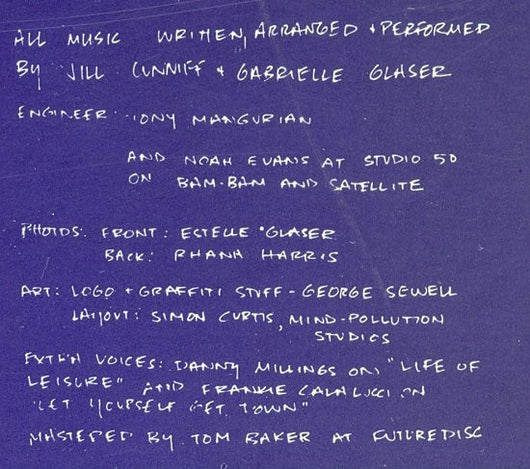 ALL MUSIC WRITTEN, ARRANGED + PERFORMED
BY JILL CUNNIFF + GABRIELLE GLASER
ENGINEER: TONY MANGURIAN
AND NOAH EVANS AT STUDIO 50
ON BAM-BAM AND SATELLITE
PHOTOS: FRONT: ESTELLE GLASER
BACK: RHANA HARRIS
ART: LOGO + GRAFFITI STUFF - GEORGE SEWELL
LAYOUT: SIMON CURTIS, MIND-POLLUTION
STUDIOS
EXTRA VOICES: DANNY MILLINGS ON "LIFE OF
LEISURE" AND FRANKIE ON
"LET YOURSELF GET TOWN"
MASTERED BY TOM BAKER AT FUTUREDISC